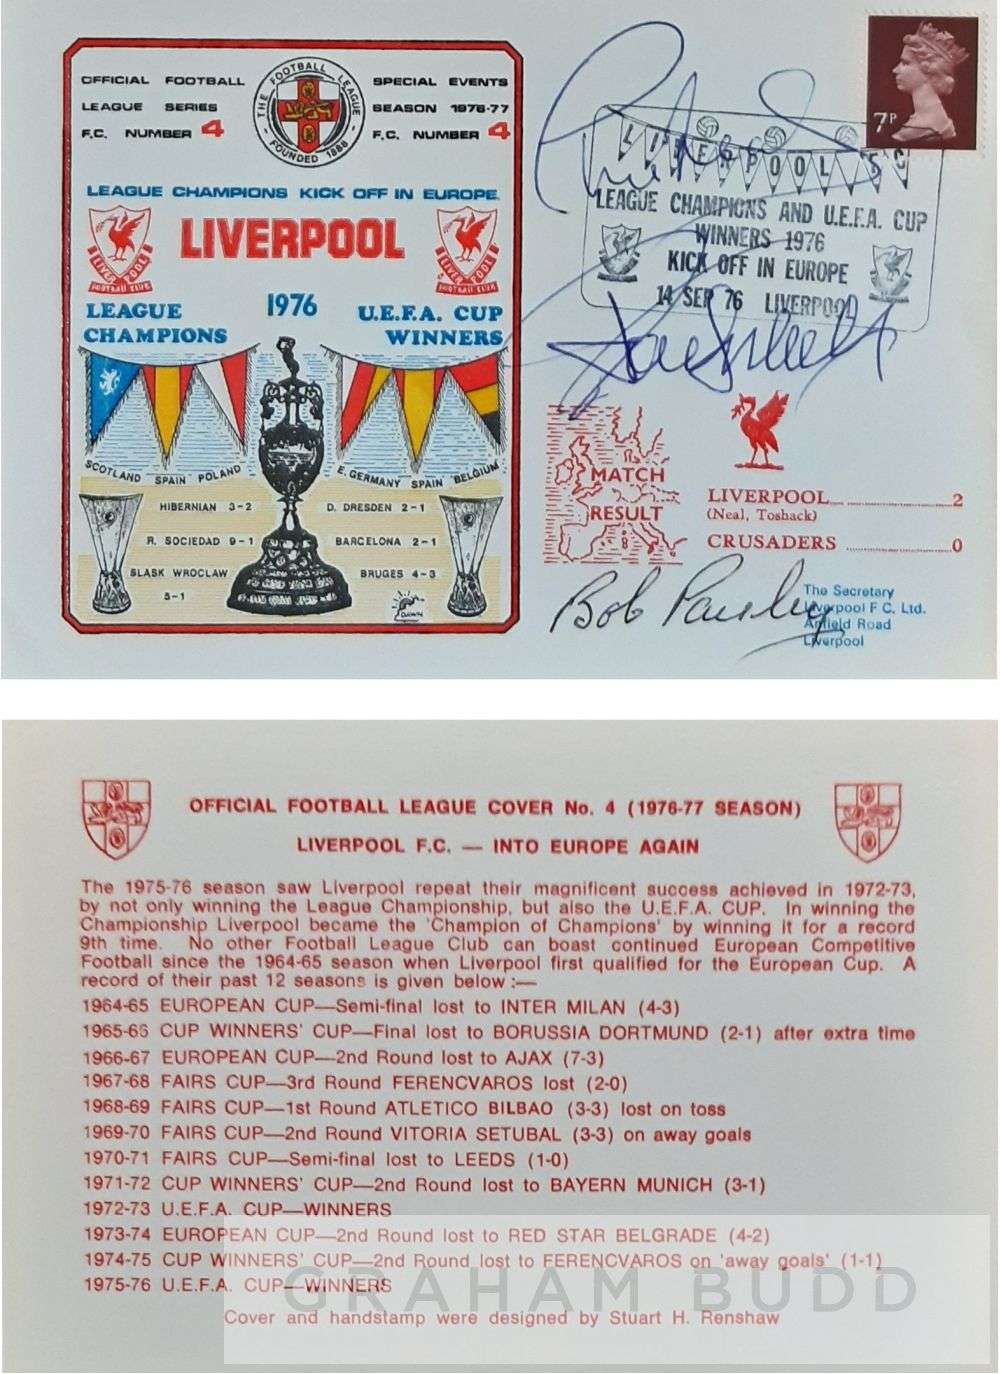 OFFICIAL FOOTBALL
LEAGUE SERIES
F.C. NUMBER 4
THE FOOTBALL LEAGUE
FOUNDED 1888
SPECIAL EVENTS
SEASON 1976-77
F.C. NUMBER 4
LEAGUE CHAMPIONS KICK OFF IN EUROPE
LIVERPOOL
LIVERPOOL
FOOTBALL CLUB
LIVERPOOL
FOOTBALL CLUB
1976
LEAGUE
CHAMPIONS
U.E.F.A. CUP
WINNERS
SCOTLAND SPAIN POLAND
E. GERMANY SPAIN BELGIUM
HIBERNIAN 3-2
D. DRESDEN 2-1
R. SOCIEDAD 9-1
BARCELONA 2-1
SLASK WROCLAW
5-1
BRUGES 4-3
DAWN
7P
LIVERPOOL FC
LEAGUE CHAMPIONS AND U.E.F.A. CUP
WINNERS 1976
KICK OFF IN EUROPE
14 SEP 76 LIVERPOOL
MATCH
RESULT
LIVERPOOL 2
(Neal, Toshack)
CRUSADERS 0
Bob Paisley
The Secretary
Liverpool F C. Ltd.
Anfield Road
Liverpool
OFFICIAL FOOTBALL LEAGUE COVER No. 4 (1976-77 SEASON)
LIVERPOOL F.C. — INTO EUROPE AGAIN
The 1975-76 season saw Liverpool repeat their magnificent success achieved in 1972-73,
by not only winning the League Championship, but also the U.E.F.A. CUP. In winning the
Championship Liverpool became the 'Champion of Champions' by winning it for a record
9th time. No other Football League Club can boast continued European Competitive
Football since the 1964-65 season when Liverpool first qualified for the European Cup. A
record of their past 12 seasons is given below :—
1964-65 EUROPEAN CUP—Semi-final lost to INTER MILAN (4-3)
1965-66 CUP WINNERS' CUP—Final lost to BORUSSIA DORTMUND (2-1) after extra time
1966-67 EUROPEAN CUP—2nd Round lost to AJAX (7-3)
1967-68 FAIRS CUP—3rd Round FERENCVAROS lost (2-0)
1968-69 FAIRS CUP—1st Round ATLETICO BILBAO (3-3) lost on toss
1969-70 FAIRS CUP—2nd Round VITORIA SETUBAL (3-3) on away goals
1970-71 FAIRS CUP—Semi-final lost to LEEDS (1-0)
1971-72 CUP WINNERS' CUP—2nd Round lost to BAYERN MUNICH (3-1)
1972-73 U.E.F.A. CUP—WINNERS
1973-74 EUROPEAN CUP—2nd Round lost to RED STAR BELGRADE (4-2)
1974-75 CUP WINNERS' CUP—2nd Round lost to FERENCVAROS on 'away goals' (1-1)
1975-76 U.E.F.A. CUP—WINNERS
GRAHAM BUDD
Cover and handstamp were designed by Stuart H. Renshaw